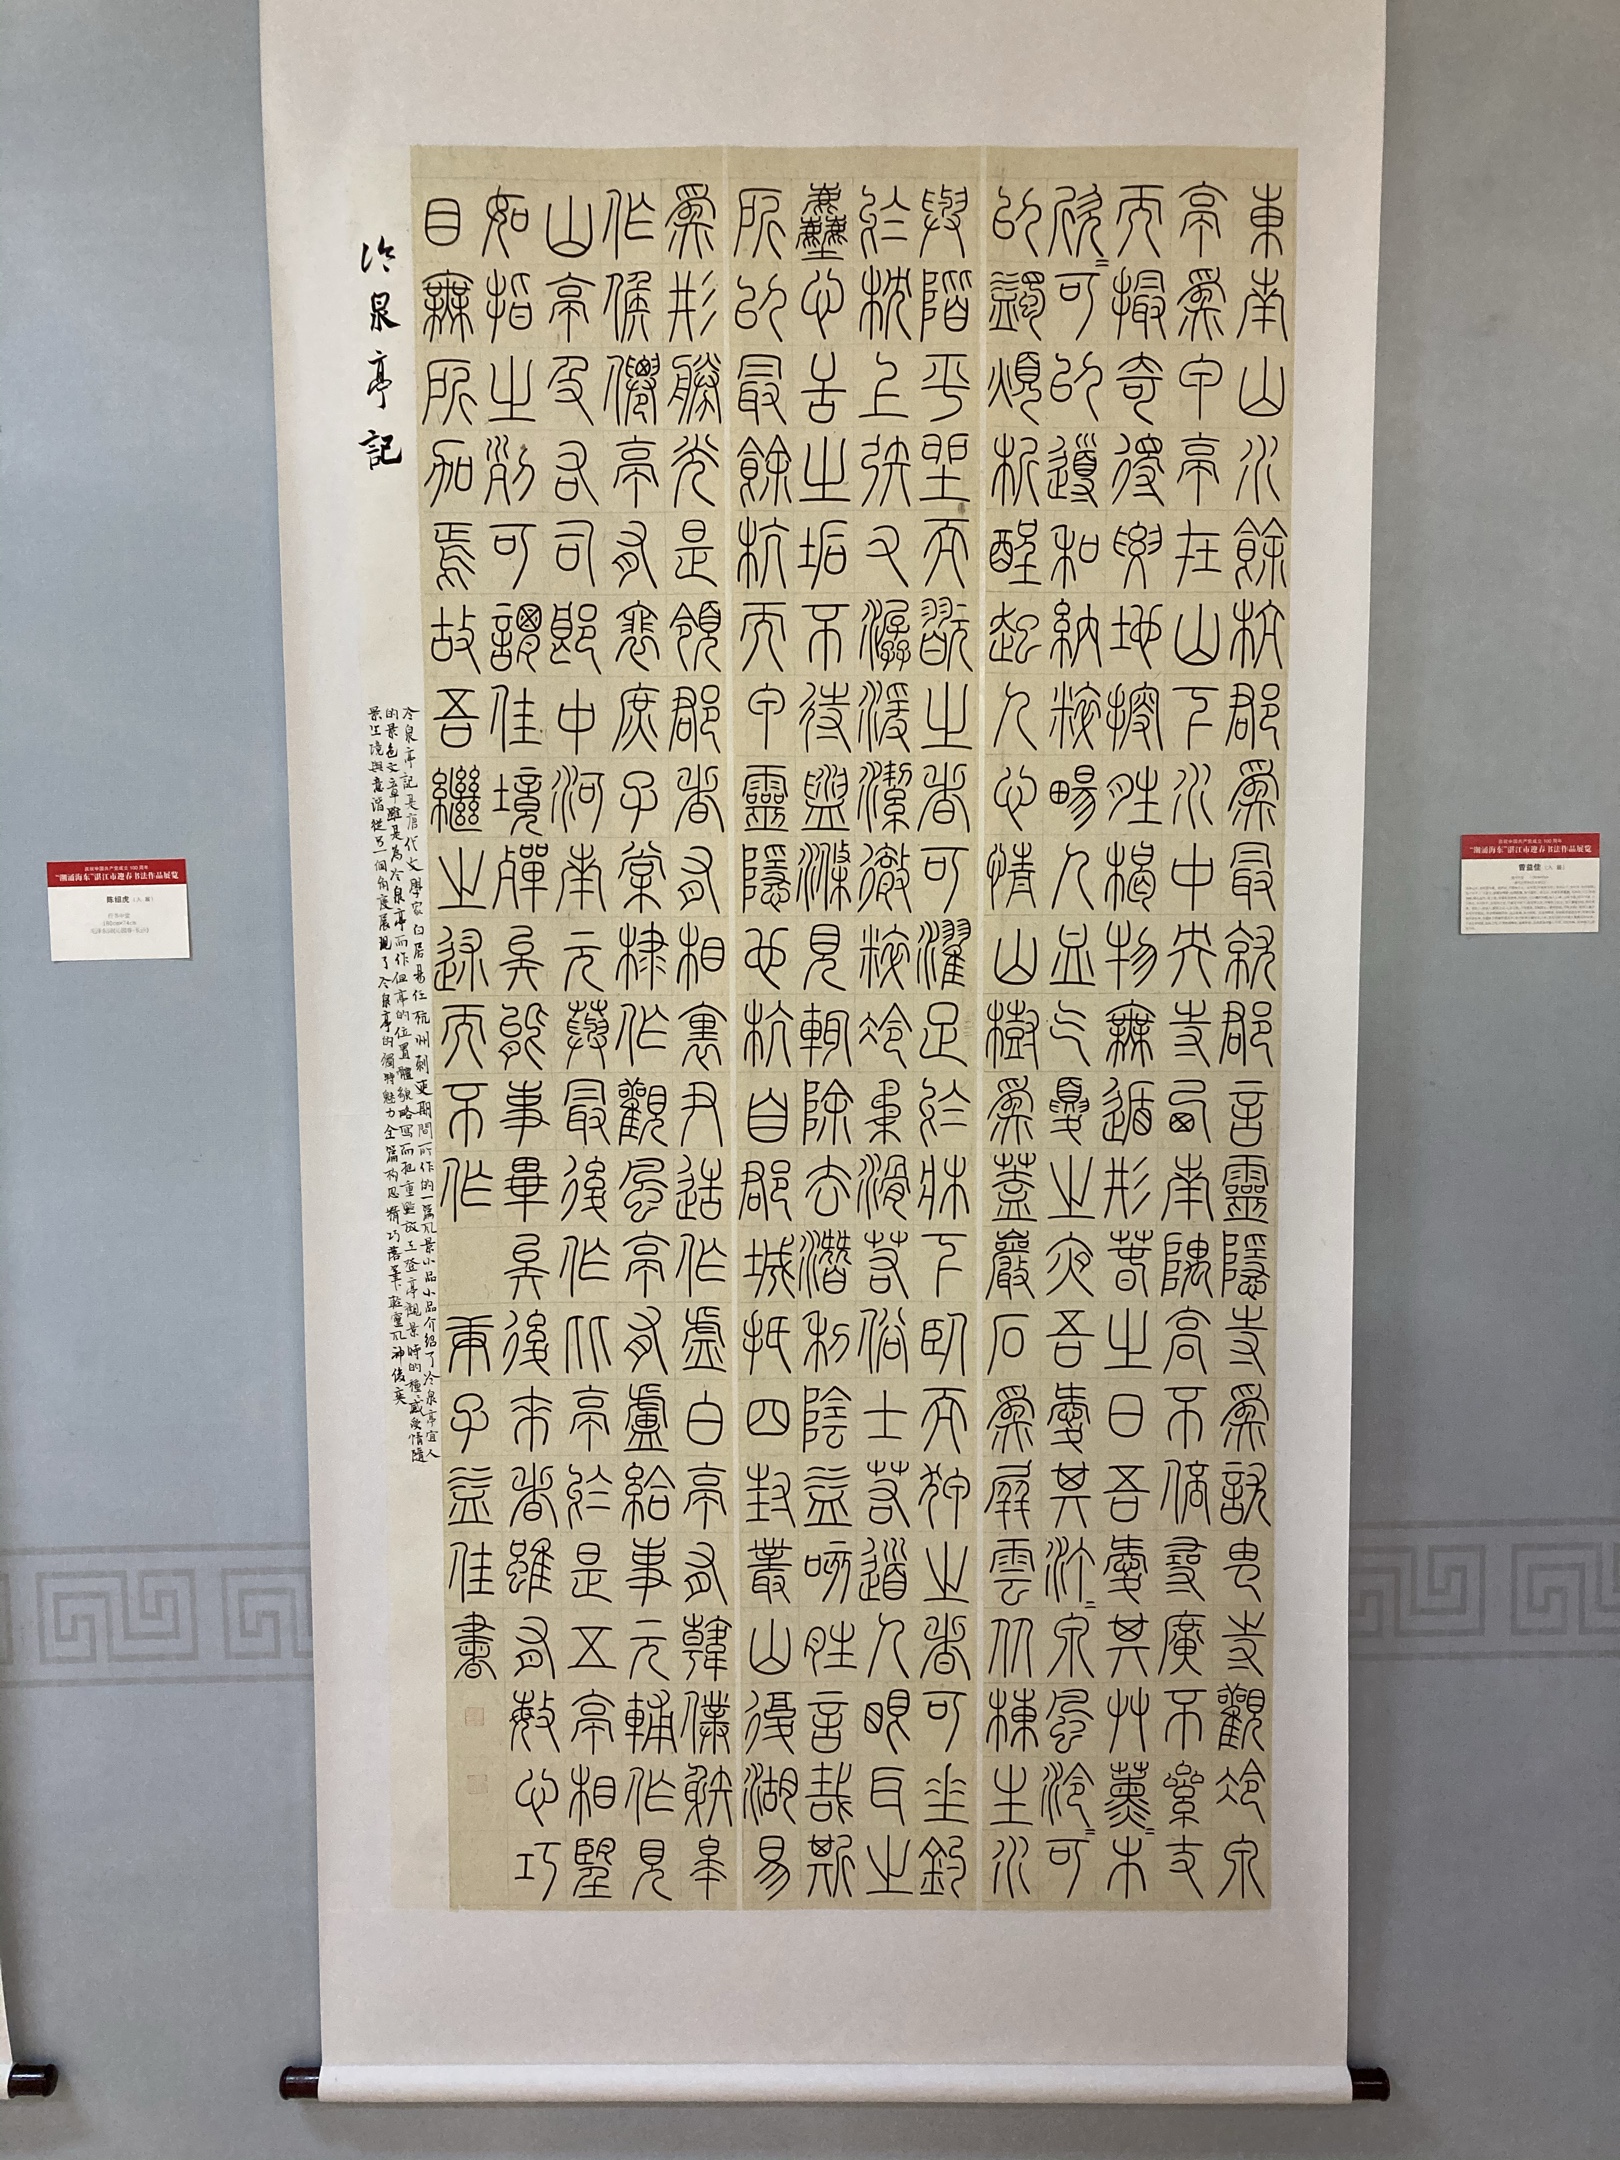 東南山水餘杭郡爲最就郡言靈隱寺爲訧由寺觀冷泉
亭爲甲亭在山下水中央寺西南隅高不倍尋廣不絫丈
而撮奇得要地搜勝概物無遁形春之日吾愛其艸薰=木
欣=可以導和納粹暢人血气夏之夜吾愛其渟=泉風泠=可
以蠲煩析酲起人心情山樹爲蓋巖石爲屏雲从棟生水
與階平坐而翫之者可濯足於牀下臥而狎之者可垂釣
於枕上矧又潺湲潔澈粹冷柔滑若俗士若道人眼耳之
塵心舌之垢不待盥滌見輒除去潛利陰益可勝言哉斯
所以最餘杭而甲靈隱也杭自郡城抵四封叢山複湖易
爲形勝先是領郡者有相里尹造作虛白亭有韓僕射皋
作候僊亭有裴庶子棠棣作觀風亭有盧給事元輔作見
山亭及右司郎中河南元藇最後作此亭於是五亭相望
如指之列可謂佳境殫矣能事畢矣後來者雖有敏心巧
目無所加焉故吾繼之述而不作 庚子益佳書
冷泉亭記
冷泉亭記是唐代文學家白居易任杭州刺史期間所作的一篇風景小品小品介紹了冷泉亭宜人
的景色文章雖是為冷泉亭而作但亭的位置體貌略寫而把重點放在登亭觀景時的種感受情隨
景生境與意諧從另一個角度展現了冷泉亭的獨特魅力全篇构思精巧落筆輕靈風神俊奕
庆祝中国共产党成立100周年
“潮涌海东”湛江市迎春书法作品展览
陈绍虎（入展）
180cm×74cm
庆祝中国共产党成立100周年
“潮涌海东”湛江市迎春书法作品展览
曾益佳（入展）